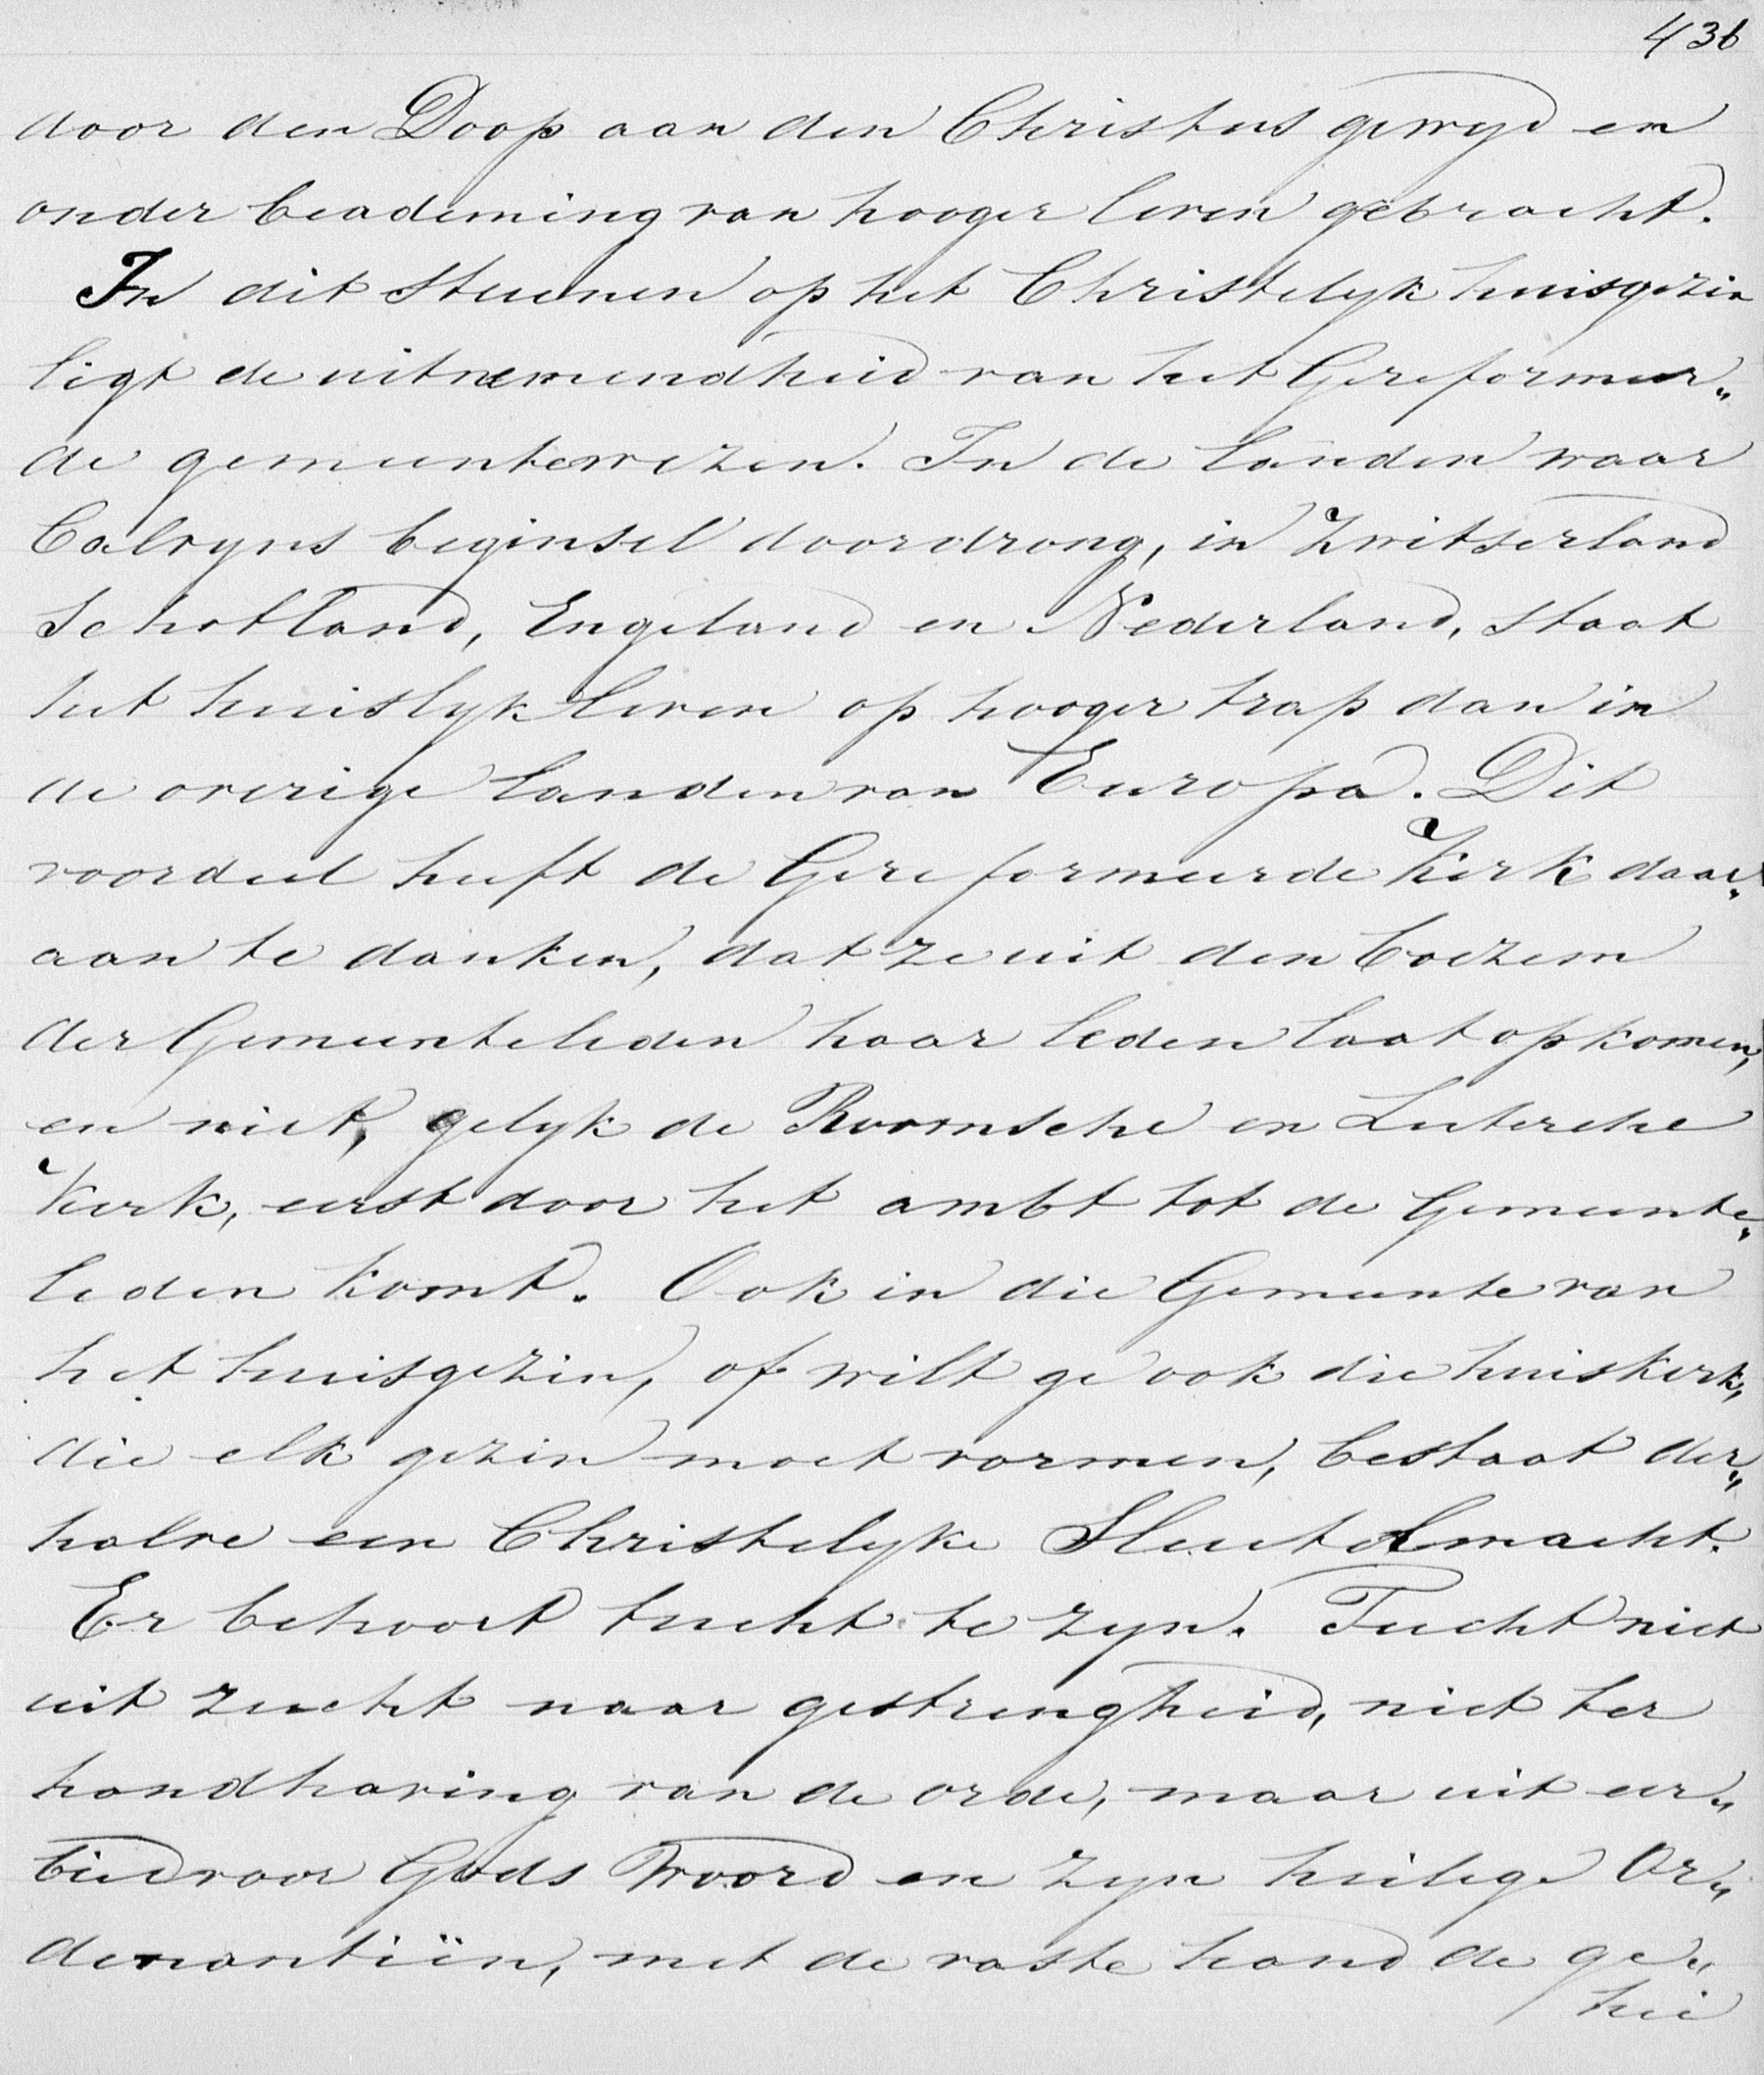 436
door den Doop aan den Christus gewyd en
onder beademing van hooger leven gebracht.
In dit steunen op het Christelyk huisgezin
ligt de uitnemendheid van het Gereformeer„
de gemeentewezen. In de landen waar
Calvyns beginsel doordrong, in Zwitserland
Schotland, Engeland en Nederland, staat
het huislyk leven op hooger trap dan in
de overige landen van Europa. Dit
voordeel heeft de Gereformeerde Kerk daar„
aan te danken, dat ze uit den boezem
der Gemeenteleden haar leden laat opkomen,
en niet, gelyk de Roomsche en Lutersche
Kerk, eerst door het ambt tot de Gemeente„
leden komt. Ook in die Gemeente van
het huisgezin, of wilt ge ook die huiskerk,
die elk gezin moet vormen, bestaat der„
halve een Christelyke Sleutelmacht.
Er behoort tucht te zyn. Tucht niet
uit zucht naar gestrengheid, niet ter
handhaving van de orde, maar uit eer„
bied voor Gods Woord en zyn heilige Or„
denantiën, met de vaste hand de ge„
hei